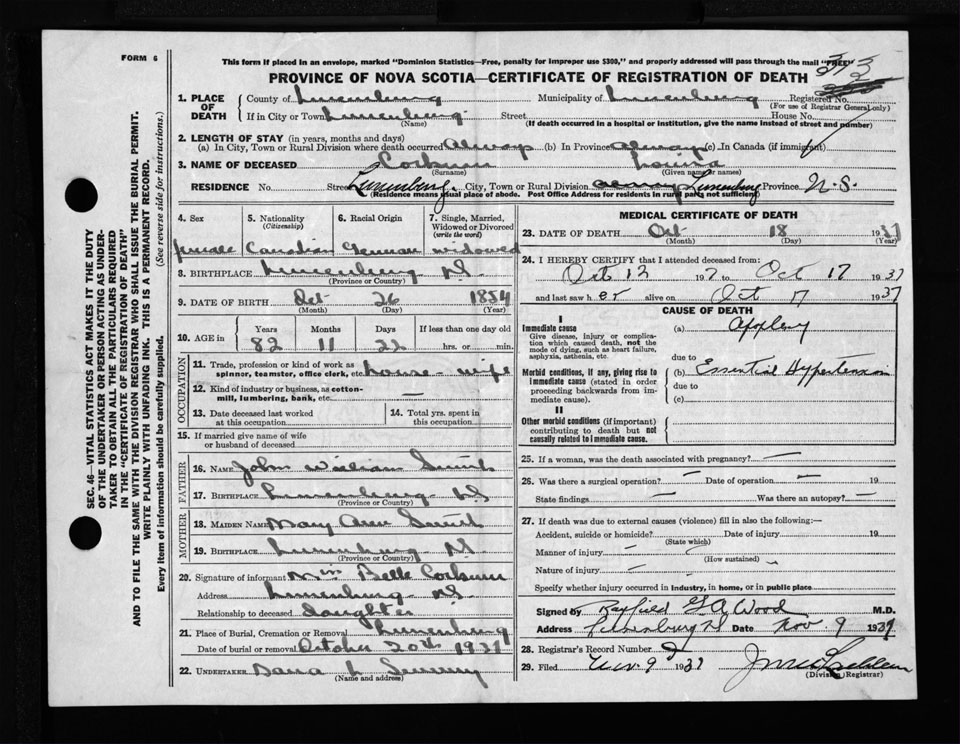 FORM 6
This form if placed in an envelope, marked "Dominion Statistics—Free, penalty for improper use $300," and properly addressed will pass through the mail "FREE"
PROVINCE OF NOVA SCOTIA—CERTIFICATE OF REGISTRATION OF DEATH
1. PLACE OF DEATH
County of Lunenburg Municipality of Lunenburg Registered No.
(For use of Registrar General only)
If in City or Town Lunenburg Street House No.
(Name) (If death occurred in a hospital or institution, give the name instead of street and number)
2. LENGTH OF STAY (in years, months and days)
(a) In City, Town or Rural Division where death occurred always (b) In Province always (c) In Canada (if immigrant)
3. NAME OF DECEASED Corkum Louisa
(Surname) (Given name or names)
RESIDENCE No. Street Lunenburg. City, Town or Rural Division Lunenburg Province N.S.
(Residence means usual place of abode. Post Office Address for residents in rural parts not sufficient)
4. Sex
female
5. Nationality
(Citizenship)
Canadian
6. Racial Origin
German
7. Single, Married, Widowed or Divorced
(write the word)
widowed
8. BIRTHPLACE Lunenburg NS
(Province or Country)
9. DATE OF BIRTH Oct 26 1854
(Month) (Day) (Year)
10. AGE in
Years Months Days If less than one day old
82 11 22 hrs. or min.
OCCUPATION
11. Trade, profession or kind of work as spinner, teamster, office clerk, etc. house-wife
12. Kind of industry or business, as cotton-mill, lumbering, bank, etc. —
13. Date deceased last worked at this occupation
14. Total yrs. spent in this occupation
15. If married give name of wife or husband of deceased
FATHER
16. NAME John William Smith
17. BIRTHPLACE Lunenburg NS
(Province or Country)
MOTHER
18. MAIDEN NAME Mary Smith
19. BIRTHPLACE Lunenburg NS
(Province or Country)
20. Signature of informant Mrs Belle Corkum
Address Lunenburg NS
Relationship to deceased daughter
21. Place of Burial, Cremation or Removal Lunenburg
Date of burial or removal October 20th 1937
22. UNDERTAKER Dana L
(Name and address)
MEDICAL CERTIFICATE OF DEATH
23. DATE OF DEATH Oct 18 1937
(Month) (Day) (Year)
24. I HEREBY CERTIFY that I attended deceased from:
Oct 12 to Oct 17 1937
and last saw her alive on Oct 17 1937
CAUSE OF DEATH
I
Immediate cause
Give disease, injury or complication which caused death, not the mode of dying, such as heart failure, asphyxia, asthenia, etc.
(a) Apoplexy
due to
Morbid conditions, if any, giving rise to immediate cause (stated in order proceeding backwards from immediate cause).
(b) Essential Hypertension
due to
(c)
II
Other morbid conditions (if important) contributing to death but not causally related to immediate cause.
25. If a woman, was the death associated with pregnancy? —
26. Was there a surgical operation? — Date of operation — 19
State findings — Was there an autopsy? —
27. If death was due to external causes (violence) fill in also the following:—
Accident, suicide or homicide? Date of injury 19
(State which)
Manner of injury —
(How sustained)
Nature of injury —
Specify whether injury occurred in industry, in home, or in public place
Signed by Rayfield G A Wood M.D.
Address Lunenburg NS Date Nov. 9 1937
28. Registrar's Record Number
29. Filed Nov. 9 1937
(Division Registrar)
SEC. 46—VITAL STATISTICS ACT MAKES IT THE DUTY
OF THE UNDERTAKER OR PERSON ACTING AS UNDER-
TAKER TO OBTAIN ALL THE PARTICULARS REQUIRED
IN THE "CERTIFICATE OF REGISTRATION OF DEATH"
AND TO FILE THE SAME WITH THE DIVISION REGISTRAR WHO SHALL ISSUE THE BURIAL PERMIT.
WRITE PLAINLY WITH UNFADING INK. THIS IS A PERMANENT RECORD.
Every item of information should be carefully supplied. (See reverse side for instructions.)